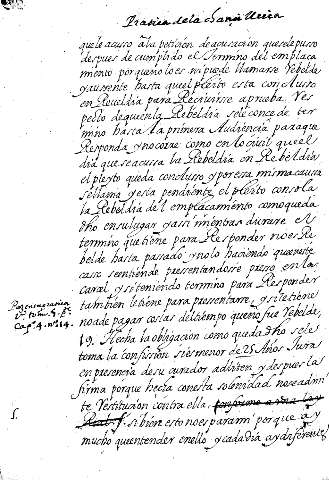 Practica de la Santa Ucera
que le acuso a la peticion de acusacion que se le puso
despues de cumplido el termino del emplaca
miento porque no lo es ni puede llamarse Rebelde
y ausente hasta que el pleito esta concluso
en Reveldia para Recivirse a prueba. Res
pecto de que en la Rebeldia se le concede ter
mino hasta la primera Audiencia para que
Responda y no corre como en lo civil que el
dia que se acusa la Rebeldia o Rebeldias
el pleito queda concluso y por esa misma causa
se llama y esta pendiente el pleito con sola
la Rebeldia del emplacamiento como queda
dho en su lugar y assi mientras durare el
termino que tiene para Responder no es Re
belde hasta pasado y no lo haciendo que en este
caso sentiendo presentandose preso en la
carcel y si teniendo termino para Responder
tambien le tiene para presentarse, y si le tiene
no a de pagar costas del tiempo que no fue Rebelde,
19. Hecha la obligacion como queda dho se le
toma la confesion si es menor de 25 Años Jura
en presencia de su curador ad litem y despues la
firma porque hecha con esta solenidad no se admi
te Restitucion contra ella,
si bien esto no es para mi porque a y
mucho que entender en ello y cada dia ay diferentes
tom. 1. P.
Cap. 4. n. 14.